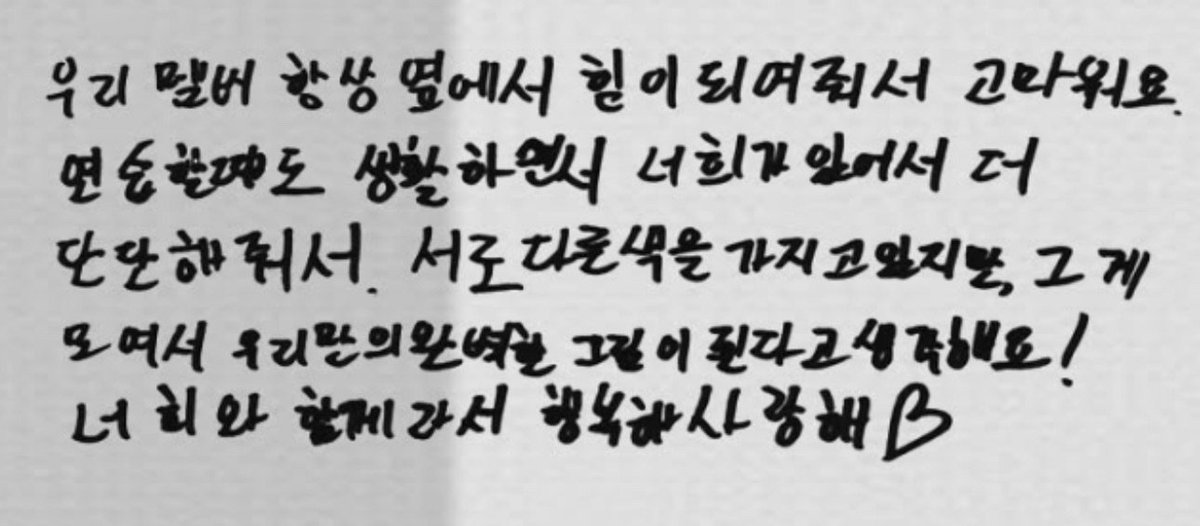 우리 멤버 항상 옆에서 힘이 되여줘서 고마워요.
연습할때도 생활하면서 너희가 있어서 더
단단해줘서. 서로 다른 색을 가지고 있지만, 그게
모여서 우리만의 완벽한 그림이 된다고 생각해요!
너희와 함께라서 행복해 사랑해 ♡